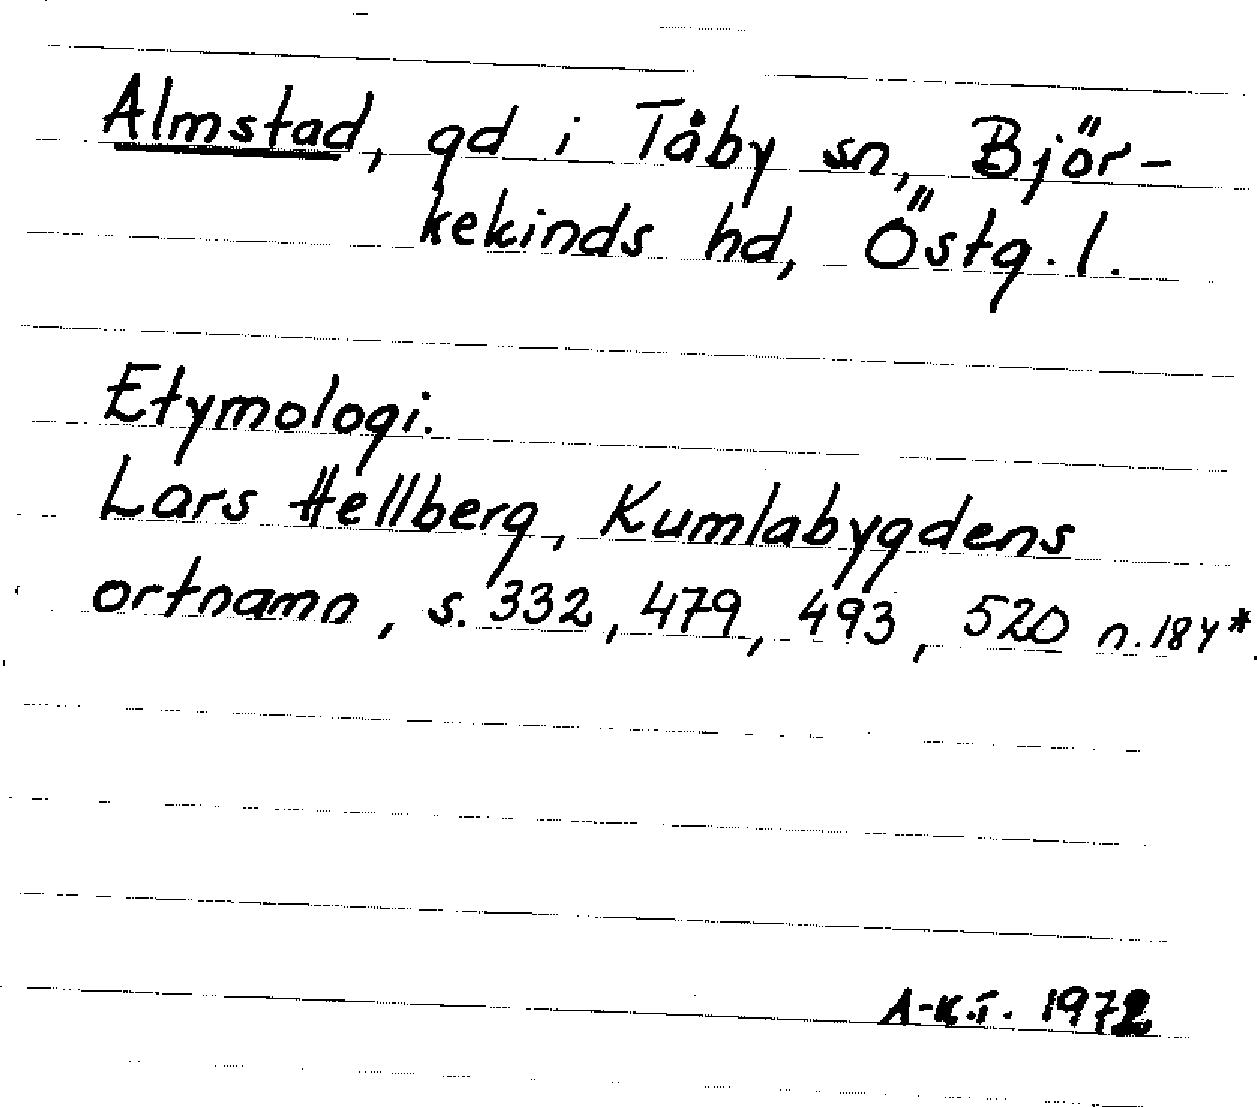 Almstad, gd i Tåby sn, Björ-
kekinds hd, Östg. l.
Etymologi.
Lars Hellberg, Kumlabygdens
ortnamn, s. 332, 479, 493, 520 n. 184*.
A-K.T. 1972